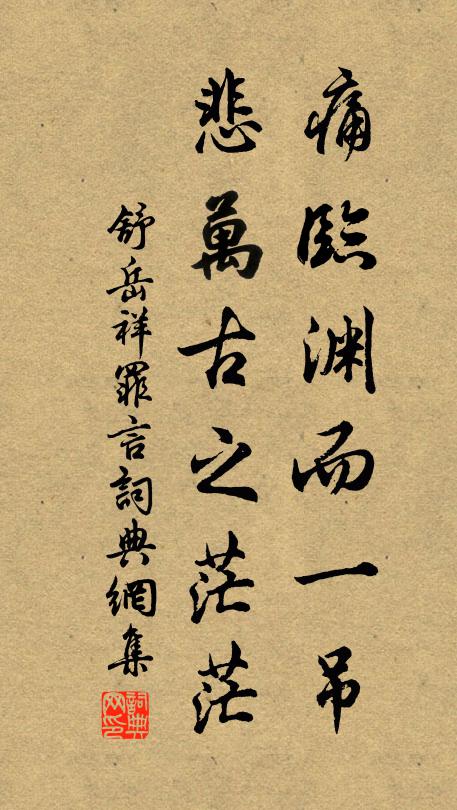 痛臨渊而一吊
悲萬古之茫茫
舒岳祥罪言詞典網集
詞典网印